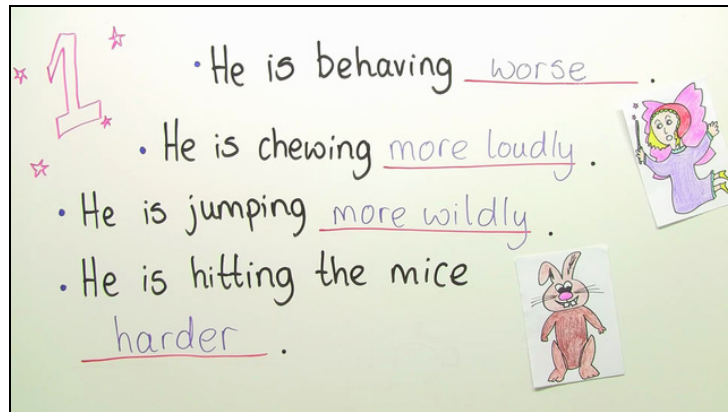 1
• He is behaving worse.
• He is chewing more loudly.
• He is jumping more wildly.
• He is hitting the mice
harder.